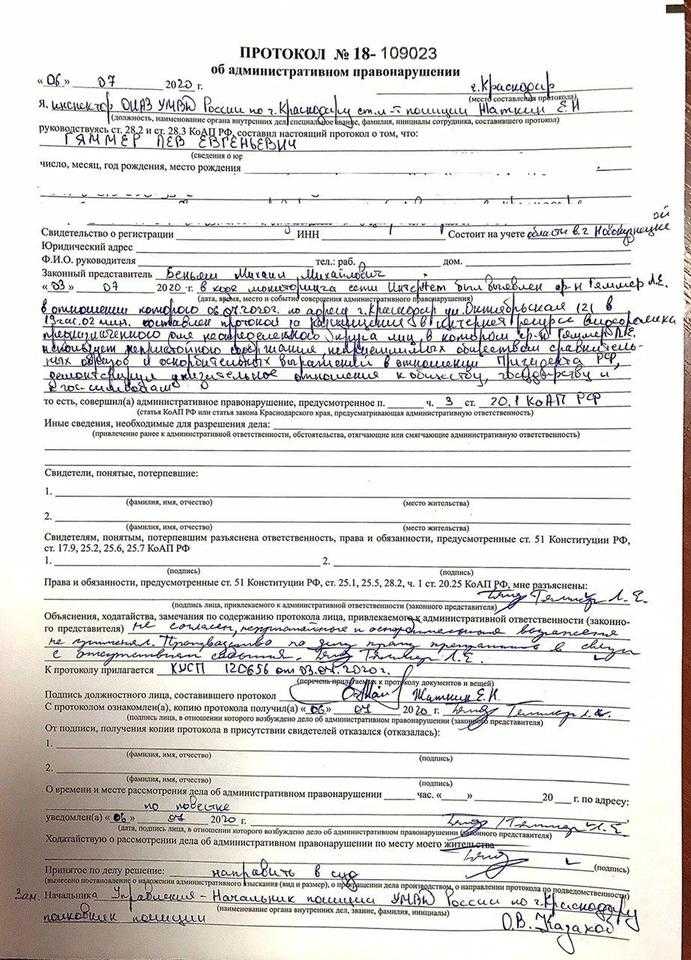 ПРОТОКОЛ № 18- 109023
об административном правонарушении
« 06 » 07 2020 г. г. Краснодар
(место составления протокола)
Я, инспектор ОИАЗ УМВД России по г. Краснодару ст. л-т полиции Жаткин Е.Н
(должность, наименование органа внутренних дел, специальное звание, фамилия, инициалы сотрудника, составившего протокол)
руководствуясь ст. 28.2 и ст. 28.3 КоАП РФ, составил настоящий протокол о том, что:
ГЯММЕР ЛЕВ ЕВГЕНЬЕВИЧ
(сведения о юр
число, месяц, год рождения, место рождения
Свидетельство о регистрации ИНН Состоит на учете области в г. Новокузнецке
Юридический адрес
Ф.И.О. руководителя тел.: раб. дом.
Законный представитель Беньяш Михаил Михайлович
« 03 » 07 2020 г. в ходе мониторинга сети Интернет был выявлен гр-н Гяммер Л.Е.
(дата, время, место и событие совершения административного правонарушения)
в отношении которого 06.07.2020г. по адресу г. Краснодар ул. Октябрьская 121 в
19 час. 02 мин. составлен протокол за размещение в интернет ресурсе видеоролика
предназначенного для неопределенного круга лиц, в котором гр-н Гяммер Л.Е.
использует неприличного содержания обществом сравнитель-
ных образов и оскорбительных выражений в отношении Президента РФ,
демонстрируя отношение к обществу, государству и
то есть, совершил(а) административное правонарушение, предусмотренное п. ч. 3 ст. 20.1 КоАП РФ
(статья КоАП РФ или статья закона Краснодарского края, предусматривающая административную ответственность)
Иные сведения, необходимые для разрешения дела:
(привлечение ранее к административной ответственности, обстоятельства, отягчающие или смягчающие административную ответственность)
Свидетели, понятые, потерпевшие:
1.
(фамилия, имя, отчество) (место жительства)
2.
(фамилия, имя, отчество) (место жительства)
Свидетелям, понятым, потерпевшим разъяснена ответственность, права и обязанности, предусмотренные ст. 51 Конституции РФ,
ст. 17.9, 25.2, 25.6, 25.7 КоАП РФ
1. 2.
(подпись) (подпись)
Права и обязанности, предусмотренные ст. 51 Конституции РФ, ст. 25.1, 25.5, 28.2, ч. 1 ст. 20.25 КоАП РФ, мне разъяснены:
Гяммер Л.Е.
(подпись лица, привлекаемого к административной ответственности (законного представителя)
Объяснения, ходатайства, замечания по содержанию протокола лица, привлекаемого к административной ответственности (законно-
го представителя) не согласен,
не применял. Производство по делу прошу прекратить в связи
с отсутствием события. Гяммер Л.Е.
К протоколу прилагается КУСП 120656 от 03.07.2020г.
(перечень прилагаемых к протоколу документов и вещей)
Подпись должностного лица, составившего протокол Жаткин Е.Н
С протоколом ознакомлен(а), копию протокола получил(а) « 06 » 07 2020 г. Гяммер Л.Е.
(подпись лица, в отношении которого возбуждено дело об административном правонарушении (законного представителя)
От подписи, получения копии протокола в присутствии свидетелей отказался (отказалась):
1.
(фамилия, имя, отчество) (подпись)
2.
(фамилия, имя, отчество) (подпись)
О времени и месте рассмотрения дела об административном правонарушении час. « » 20 г. по адресу:
по повестке
уведомлен(а) « 06 » 07 2020 Гяммер Л.Е.
(дата, подпись лица, в отношении которого возбуждено дело об административном правонарушении (законного представителя)
Ходатайствую о рассмотрении дела об административном правонарушении по месту моего жительства
(подпись)
Принятое по делу решение: направить в суд
(вынесено постановление о наложении административного взыскания (вид и размер), о прекращении дела производством, о направлении протокола по подведомственности)
Зам. Начальника Управления - Начальник полиции УМВД России по г. Краснодару
(наименование органа внутренних дел, звание, фамилия, инициалы)
полковник полиции О.В. Казахов